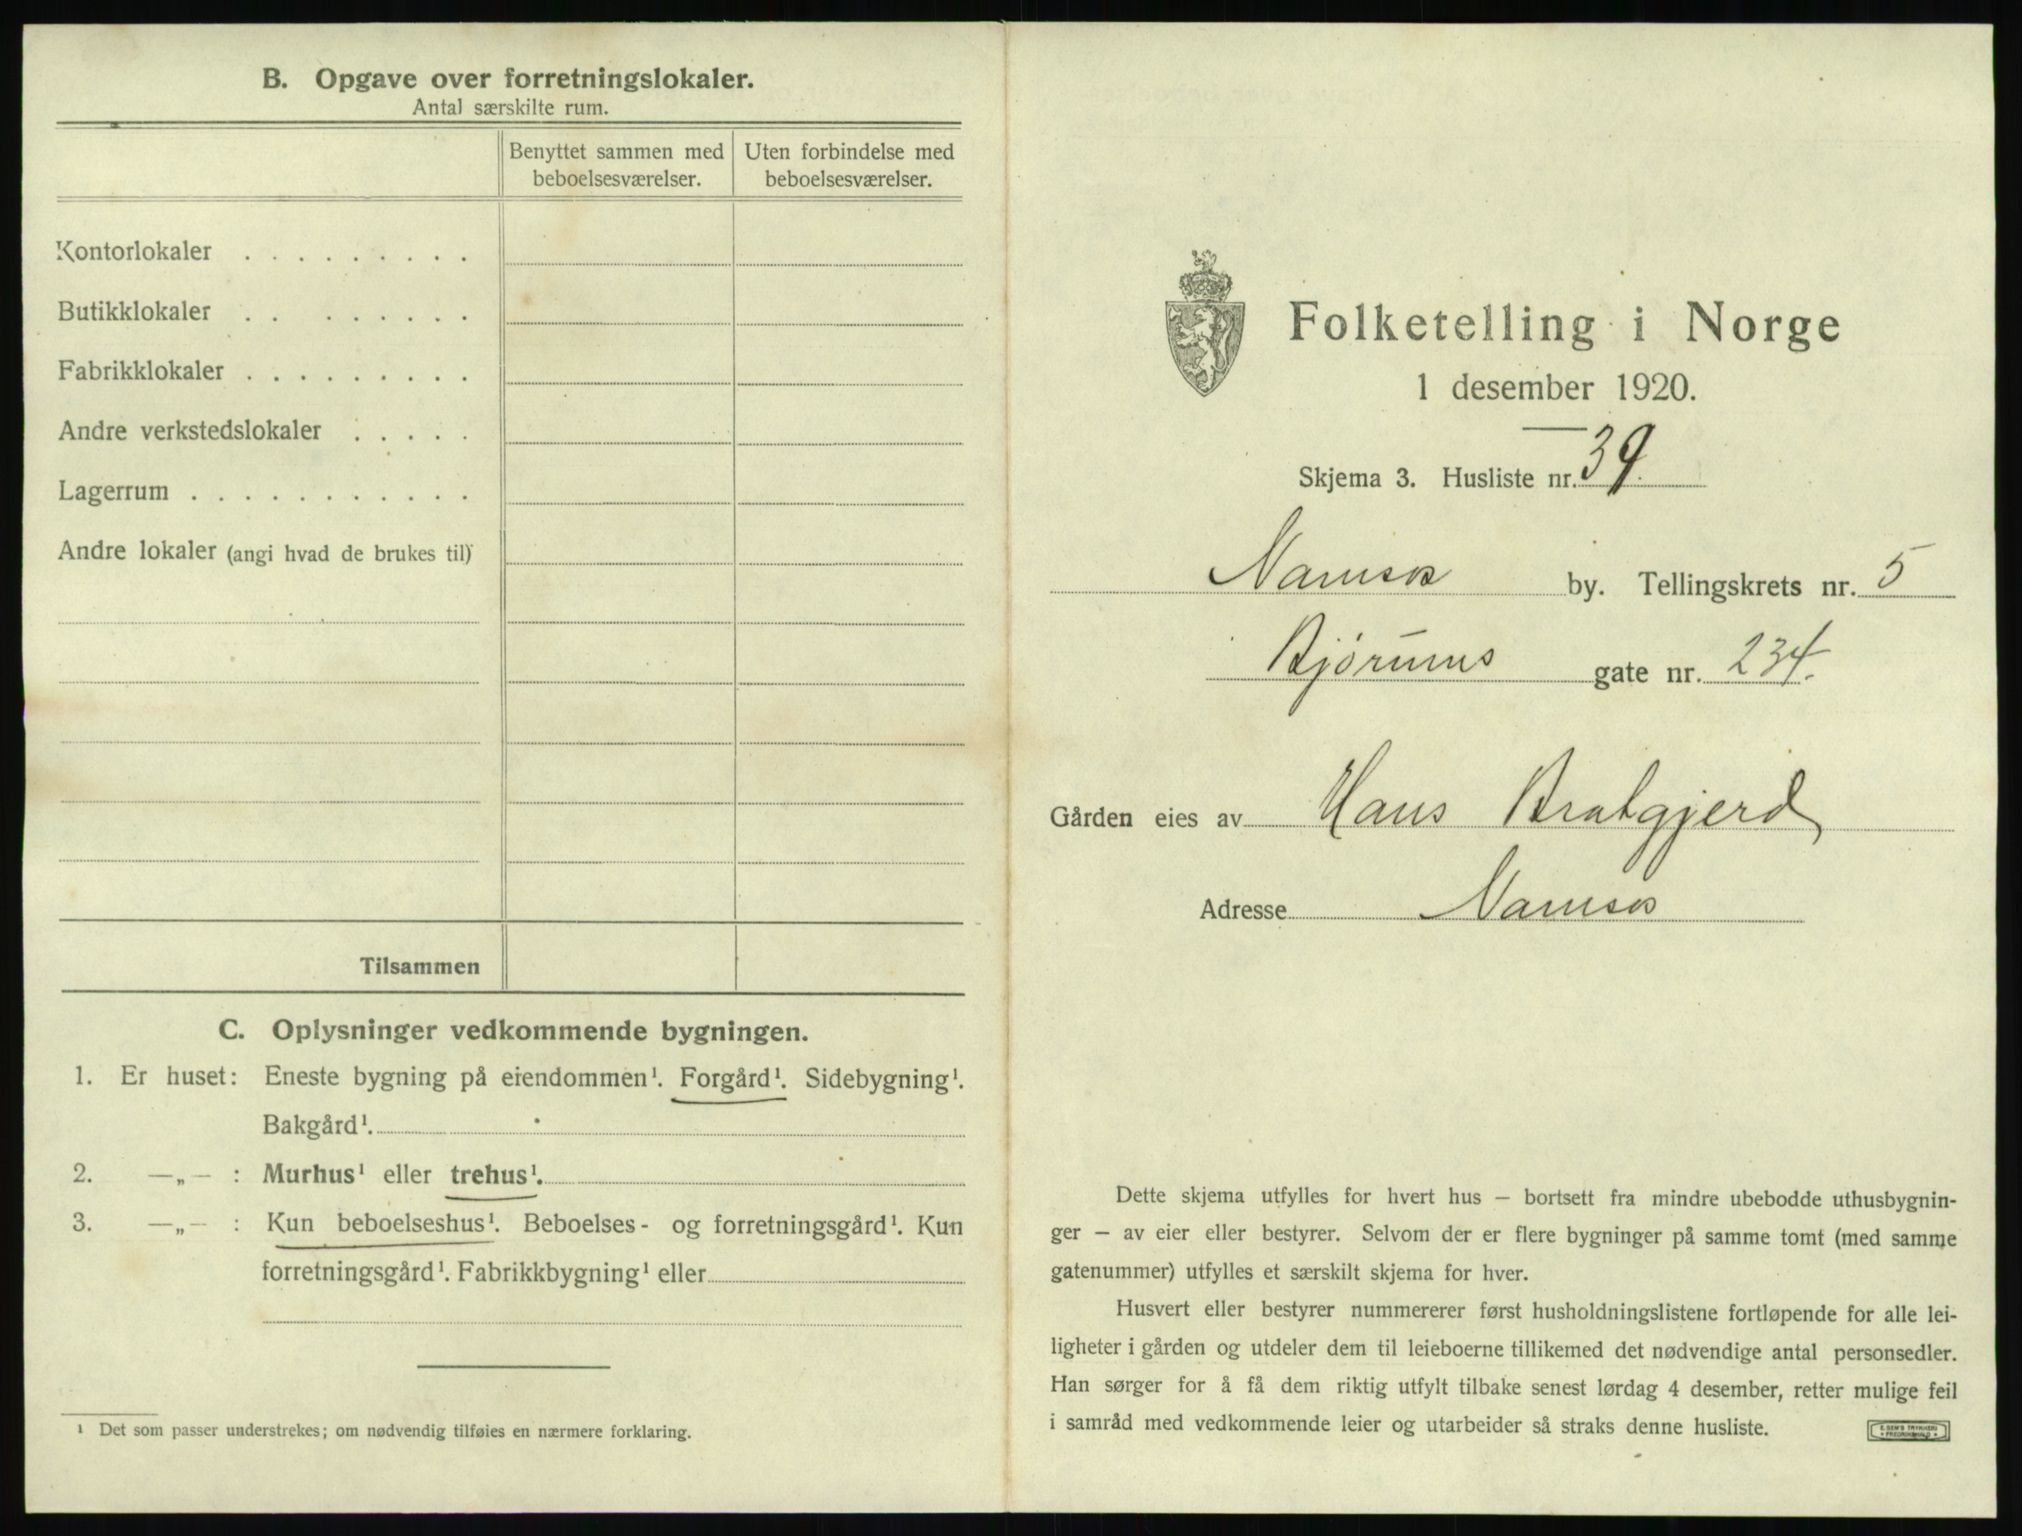 B. Opgave over forretningslokaler.
Antal særskilte rum.
Benyttet sammen med beboelsesværelser.
Uten forbindelse med beboelsesværelser.
Kontorlokaler . . . . . . . . .
Butikklokaler . . . . . . . .
Fabrikklokaler . . . . . . . . .
Andre verkstedslokaler . . . . .
Lagerrum . . . . . . . . . . .
Andre lokaler (angi hvad de brukes til)
Tilsammen
C. Oplysninger vedkommende bygningen.
1. Er huset: Eneste bygning på eiendommen¹. Forgård¹. Sidebygning¹.
Bakgård¹.
2. —„— : Murhus¹ eller trehus¹.
3. —„— : Kun beboelseshus¹. Beboelses- og forretningsgård¹. Kun
forretningsgård¹. Fabrikkbygning¹ eller
¹ Det som passer understrekes; om nødvendig tilføies en nærmere forklaring.
Folketelling i Norge
1 desember 1920.
Skjema 3. Husliste nr. 39.
Namsos by. Tellingskrets nr. 5
Bjørums gate nr. 234.
Gården eies av Hans Bratgjerd
Adresse Namsos
Dette skjema utfylles for hvert hus — bortsett fra mindre ubebodde uthusbygnin-
ger — av eier eller bestyrer. Selvom der er flere bygninger på samme tomt (med samme
gatenummer) utfylles et særskilt skjema for hver.
Husvert eller bestyrer nummererer først husholdningslistene fortløpende for alle lei-
ligheter i gården og utdeler dem til leieboerne tillikemed det nødvendige antal personsedler.
Han sørger for å få dem riktig utfylt tilbake senest lørdag 4 desember, retter mulige feil
i samråd med vedkommende leier og utarbeider så straks denne husliste.